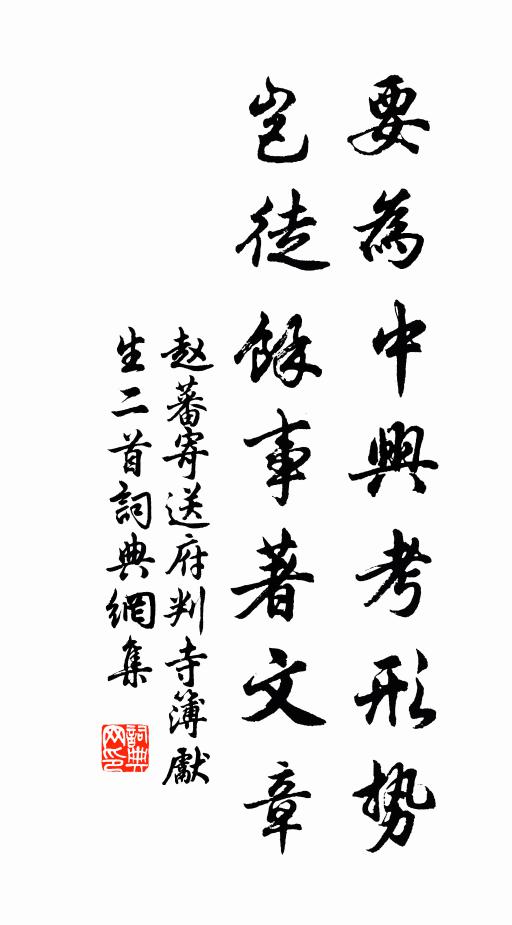 要為中興考形势
岂徒餘事著文章
赵蕃寄送府判寺簿獻
生二首詞典網集
詞典网印